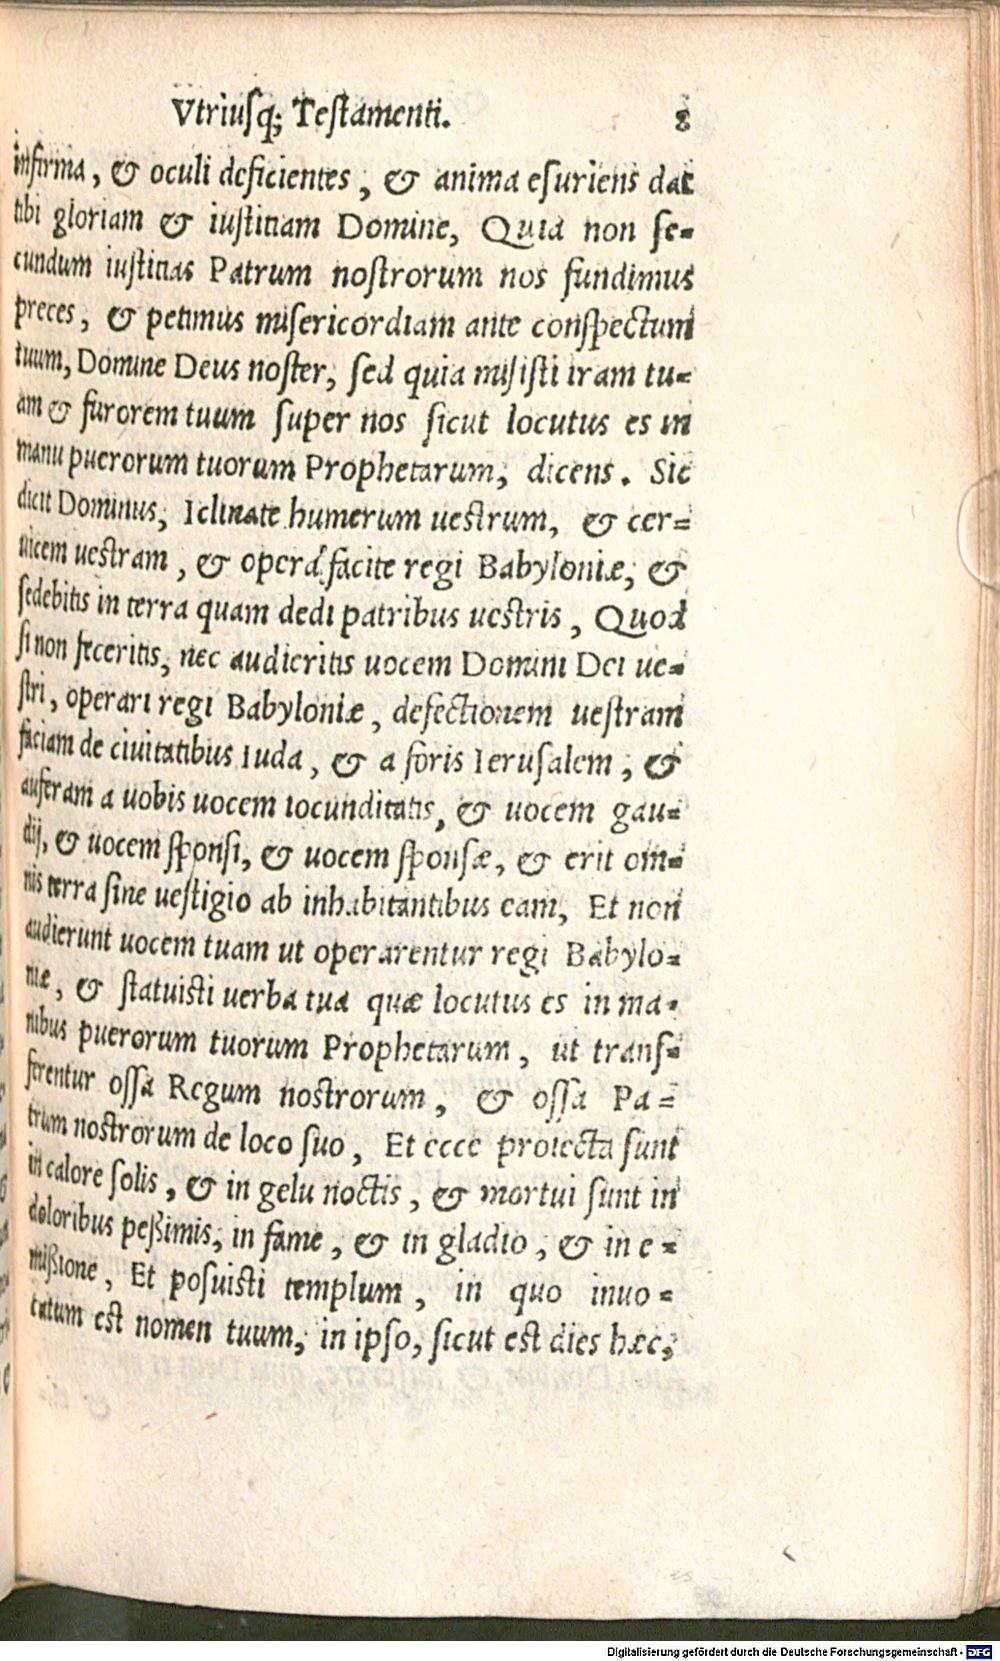 Vtriusq; Testamenti. 8
infirma, & oculi deficientes, & anima esuriens dat
tibi gloriam & iustitiam Domine, Quia non se-
cundum iustitias Patrum nostrorum nos fundimus
preces, & petimus misericordiam ante conspectum
tuum, Domine Deus noster, sed quia misisti iram tu-
am & furorem tuum super nos sicut locutus es in
manu puerorum tuorum Prophetarum, dicens. Sic
dicit Dominus, Iclinate humerum uestrum, & cer-
uicem uestram, & opera facite regi Babyloniæ, &
sedebitis in terra quam dedi patribus uestris, Quod
si non feceritis, nec audieritis uocem Domini Dei ue-
stri, operari regi Babyloniæ, defectionem uestram
faciam de ciuitatibus Iuda, & a foris Ierusalem, &
auferam a uobis uocem iocunditatis, & uocem gau-
dij, & uocem sponsi, & uocem sponsæ, & erit om-
nis terra sine uestigio ab inhabitantibus eam, Et non
audierunt uocem tuam ut operarentur regi Babylo-
niæ, & statuisti uerba tua quæ locutus es in ma-
nibus puerorum tuorum Prophetarum, ut trans-
ferentur ossa Regum nostrorum, & ossa Pa-
trum nostrorum de loco suo, Et ecce proiecta sunt
in calore solis, & in gelu noctis, & mortui sunt in
doloribus peßimis, in fame, & in gladio, & in e-
mißione, Et posuisti templum, in quo inuo-
catum est nomen tuum, in ipso, sicut est dies hæc,
Digitalisierung gefördert durch die Deutsche Forschungsgemeinschaft - DFG